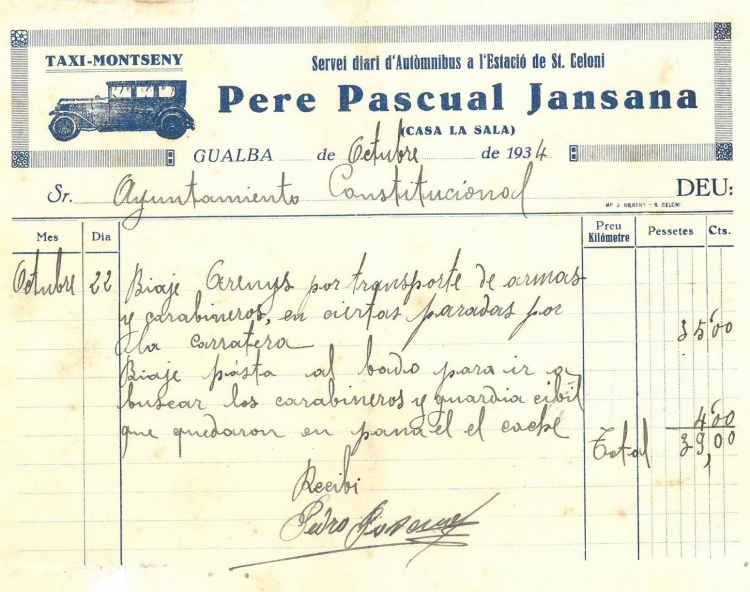 TAXI-MONTSENY
Servei diari d'Autòmnibus a l'Estació de St. Celoni
Pere Pascual Jansana
(CASA LA SALA)
GUALBA de Octubre de 1934
Sr. Ayuntamiento Constitucional DEU:
IMP. J. - S. CELONI
Mes Dia Preu Kilómetre Pessetes Cts.
Octubre 22 Biaje Arenys por transporte de armas
y carabineros, en ciertas paradas por
la carratera 35'00
Biaje pásta al bado para ir a
buscar los carabineros y guardia cibil 4'00
que quedaron en pana el el coche Total 39,00
Recibi
Pedro